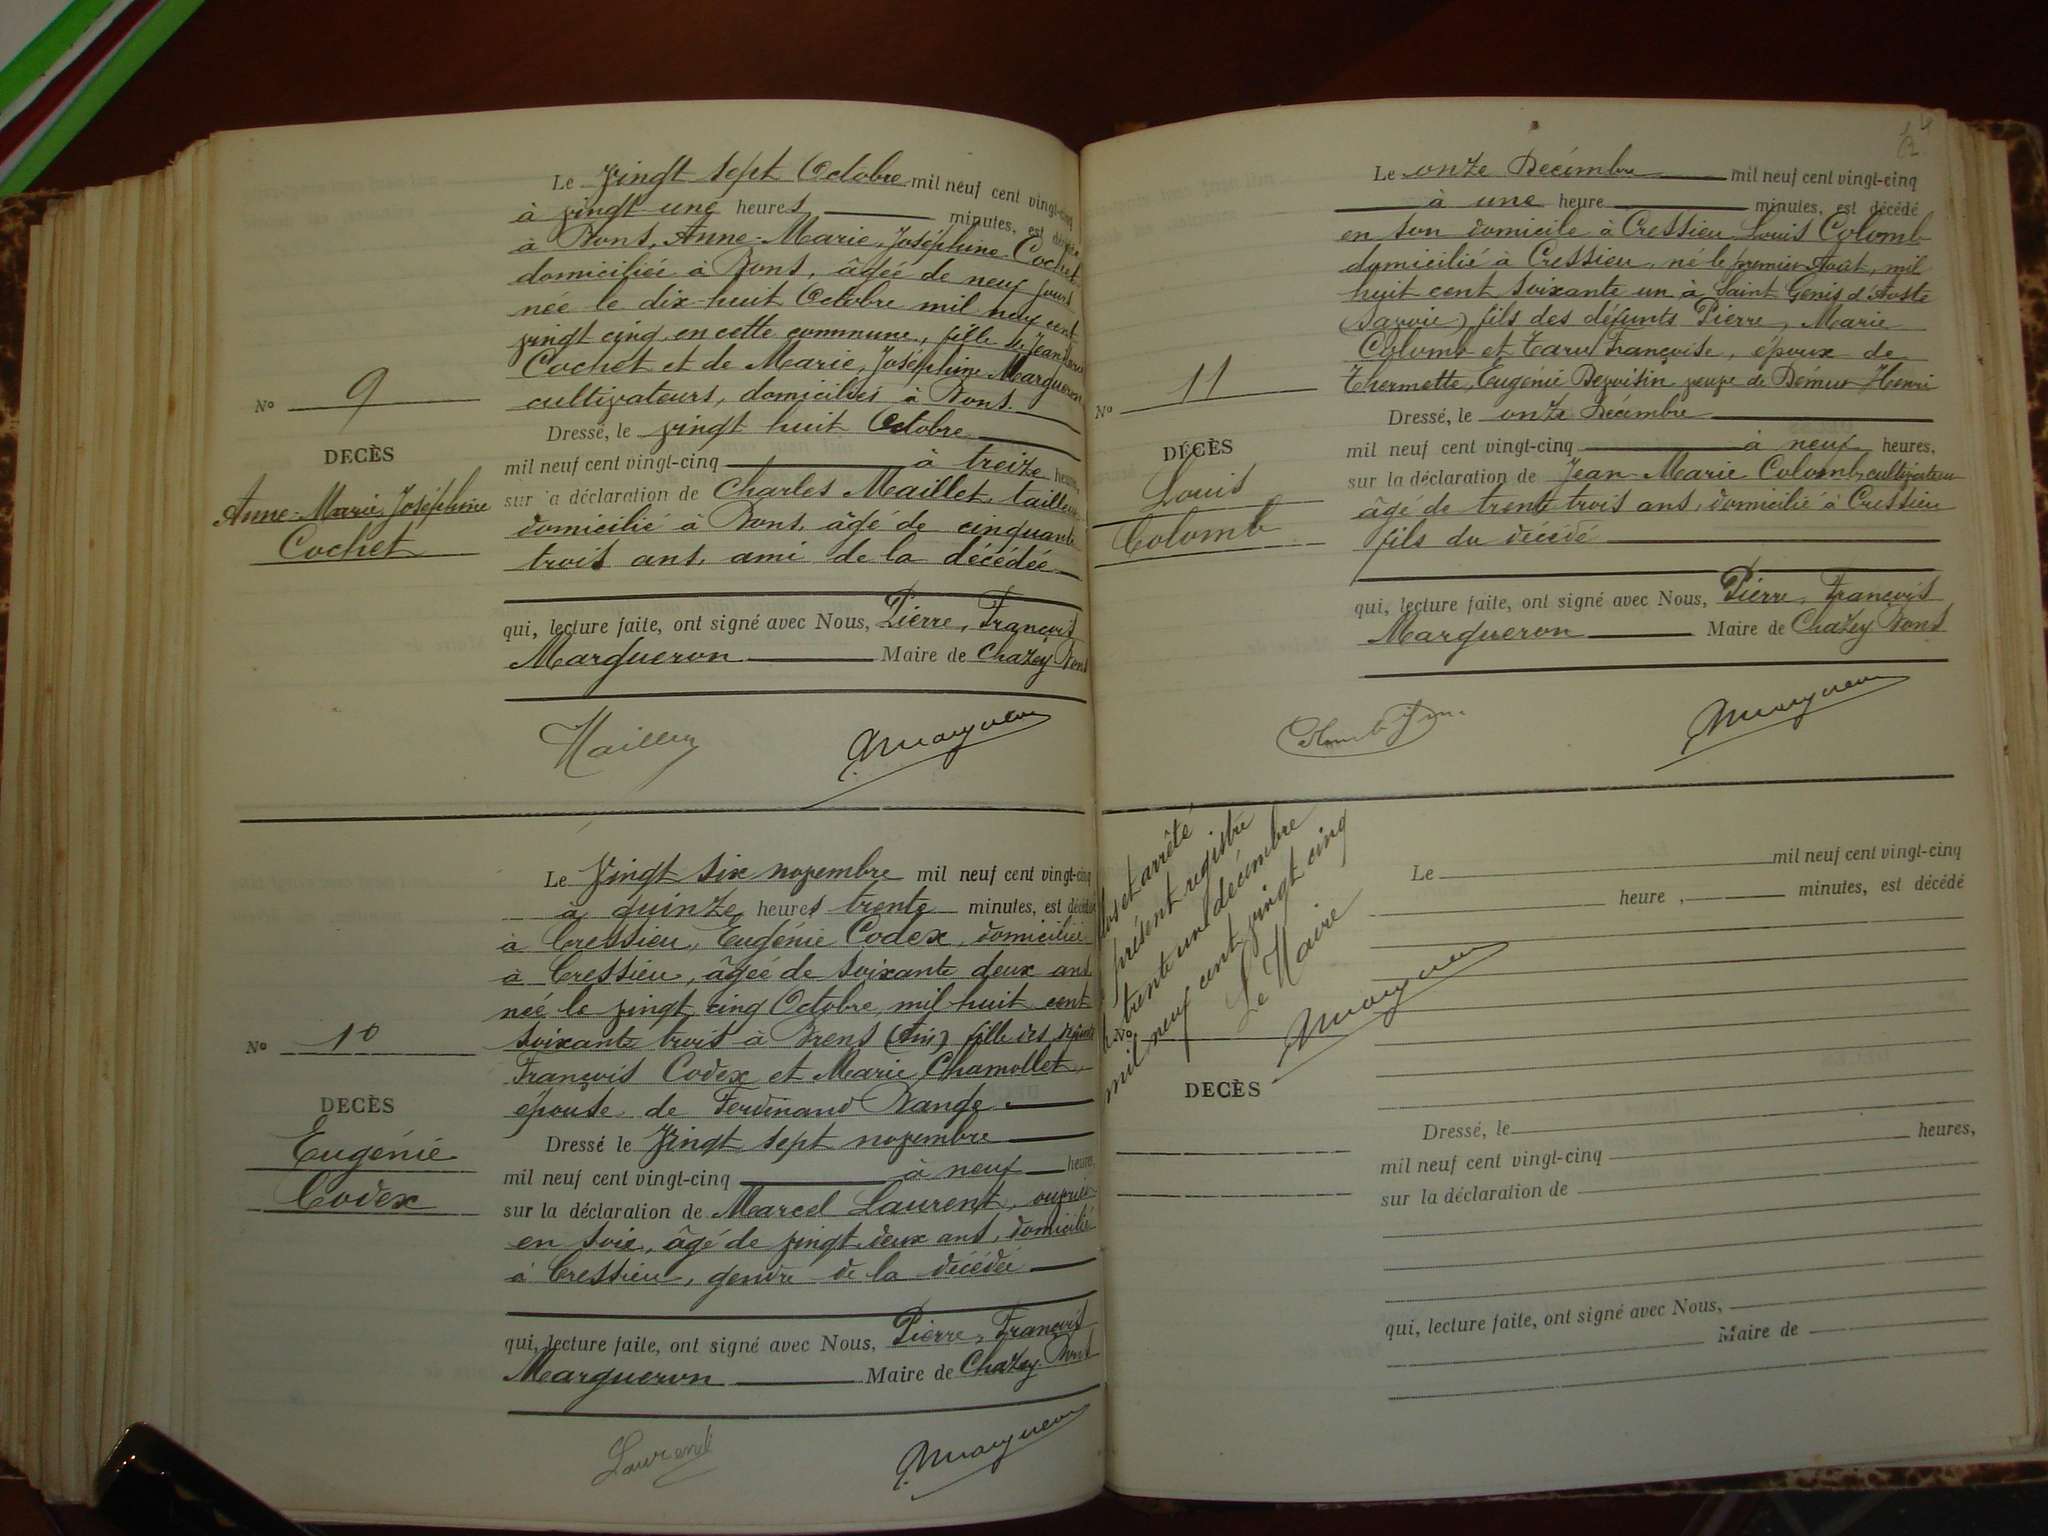 Le vingt sept Octobre mil neuf cent vingt-cinq
à vingt-une heures minutes, est décédée
à Bons, Anne-Marie, Joséphine Cochet
domiciliée à Bons, âgée de neuf jours
née le dix-huit Octobre mil neuf cent
vingt cinq en cette commune, fille de Jean
Cochet et de Marie, Joséphine Margueron
cultivateurs, domiciliés à Bons.
Nº 9
Dressé, le vingt huit Octobre
DÉCÈS
mil neuf cent vingt-cinq à treize heures,
Anne-Marie, Joséphine
sur la déclaration de Charles Maillet, tailleur
Cochet
domicilié à Bons, âgé de cinquante
trois ans, ami de la décédée
qui, lecture faite, ont signé avec Nous, Pierre, François
Margueron Maire de Chazey Bons
Maillet
Margueron
Le Vingt six novembre mil neuf cent vingt-cinq
à quinze heures trente minutes, est décédée
à Cressieu, Eugénie Codex, domiciliée
à Cressieu, âgée de soixante deux ans
née le vingt cinq Octobre mil huit cent
Nº 10
soixante trois à Brens (Ain) fille des défunts
François Codex et Marie Chamollet
DECÈS
épouse de Ferdinand Bande.
Eugénie
Dressé le Vingt sept novembre
Codex
mil neuf cent vingt-cinq à neuf heures,
sur la déclaration de Marcel Laurent, ouvrier
en soie, âgé de vingt deux ans, domicilié
à Cressieu, gendre de la décédée
qui, lecture faite, ont signé avec Nous, Pierre, François
Margueron Maire de Chazey-Bons
Laurent
Margueron
Le onze Décembre mil neuf cent vingt-cinq
à une heure minutes, est décédé
en son domicile à Cressieu Louis Colomb
domicilié à Cressieu, né le premier Août, mil
huit cent soixante un à Saint Genis d'Aoste
(Savoie) fils des défunts Pierre, Marie
Colomb et Françoise, époux de
Thermette, Eugénie veuve de Henri
Nº 11
Dressé, le onze Décembre
DÉCÈS
mil neuf cent vingt-cinq à neuf heures,
Louis
sur la déclaration de Jean-Marie Colomb, cultivateur
Colomb
âgé de trente trois ans, domicilié à Cressieu
fils du décédé
qui, lecture faite, ont signé avec Nous, Pierre, François
Margueron Maire de Chazey Bons
Margueron
Clos et arrêté
présent registre
trente un décembre
mil neuf cent vingt cinq
Le Maire
Margueron
Le mil neuf cent vingt-cinq
heure, minutes, est décédé
Nº
DECÈS
Dressé, le
mil neuf cent vingt-cinq heures,
sur la déclaration de
qui, lecture faite, ont signé avec Nous,
Maire de